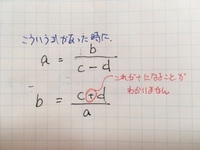 こういう式があった時に、
a = b / (c - d)
これが+になることが
わかりません
b = (c + d) / a